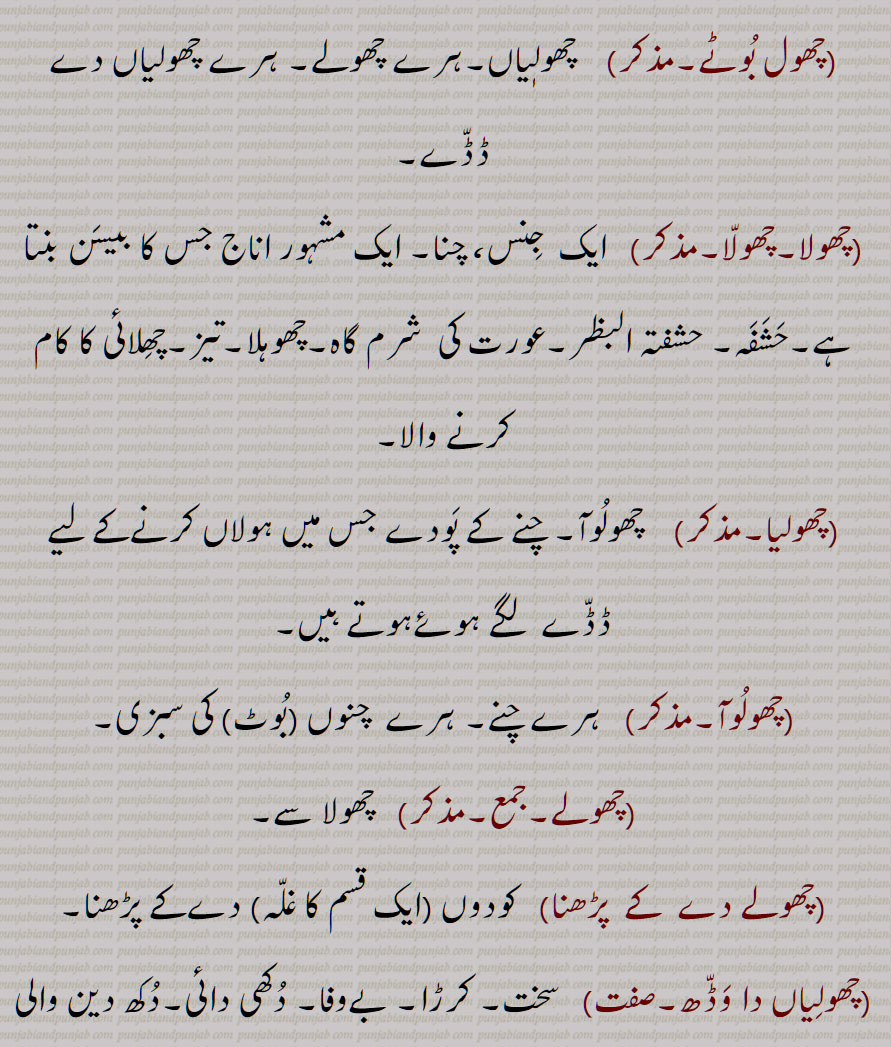 (چھول بُوٹے۔مذکر) چھولیاں۔ہرے چھولے۔ ہرے چھولیاں دے
ڈڈّے۔
(چھولا۔چھولّا۔مذکر) ایک جِنس، چنا۔ ایک مشہور اناج جس کا بیسَن بنتا
ہے۔حَشَفَہ۔ حشفتہ البظر۔عورت کی شرم گاہ۔چھوہلا۔تیز۔چھِلائی کا کام
کرنے والا۔
(چھولیا۔مذکر) چھولُوآ۔ چنے کے پَودے جس میں ہولاں کرنےکے لیے
ڈڈّے لگے ہوئےہوتے ہیں۔
(چھولُوآ۔مذکر) ہرے چنے۔ ہرے چنوں (بُوٹ) کی سبزی۔
(چھولے۔جمع۔مذکر) چھولا سے۔
(چھولے دے کے پڑھنا) کودوں (ایک قسم کا غلّہ) دےکے پڑھنا۔
(چھولِیاں دا وَڈّھ۔صفت) سخت۔ کرڑا۔ بےوفا۔ دُکھی دائی۔دُکھ دین والی